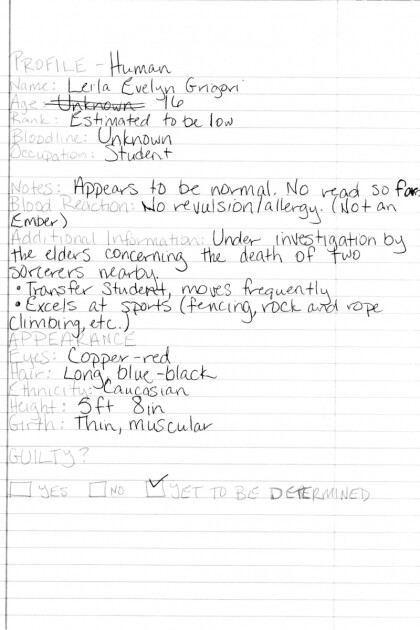 PROFILE - Human
Name: Leila Evelyn Grigori
Age: Unknown 16
Rank: Estimated to be low
Bloodline: Unknown
Occupation: Student
Notes: Appears to be normal. No read so far.
Blood Reaction: No revulsion/allergy. (Not an
Ember)
Additional Information: Under investigation by
the elders concerning the death of two
sorcerers nearby.
• Transfer student, moves frequently
• Excels at sports (fencing, rock and rope
climbing, etc.)
APPEARANCE
Eyes: Copper-red
Hair: Long, blue-black
Ethnicity: Caucasian
Height: 5ft 8in
Girth: Thin, muscular
GUILTY?
YES NO YET TO BE DETERMINED